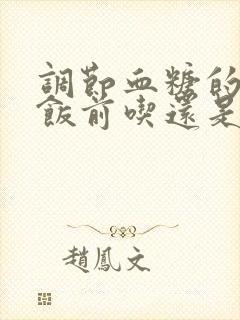 調節血糖的
飯前喫還是
趙鳳文